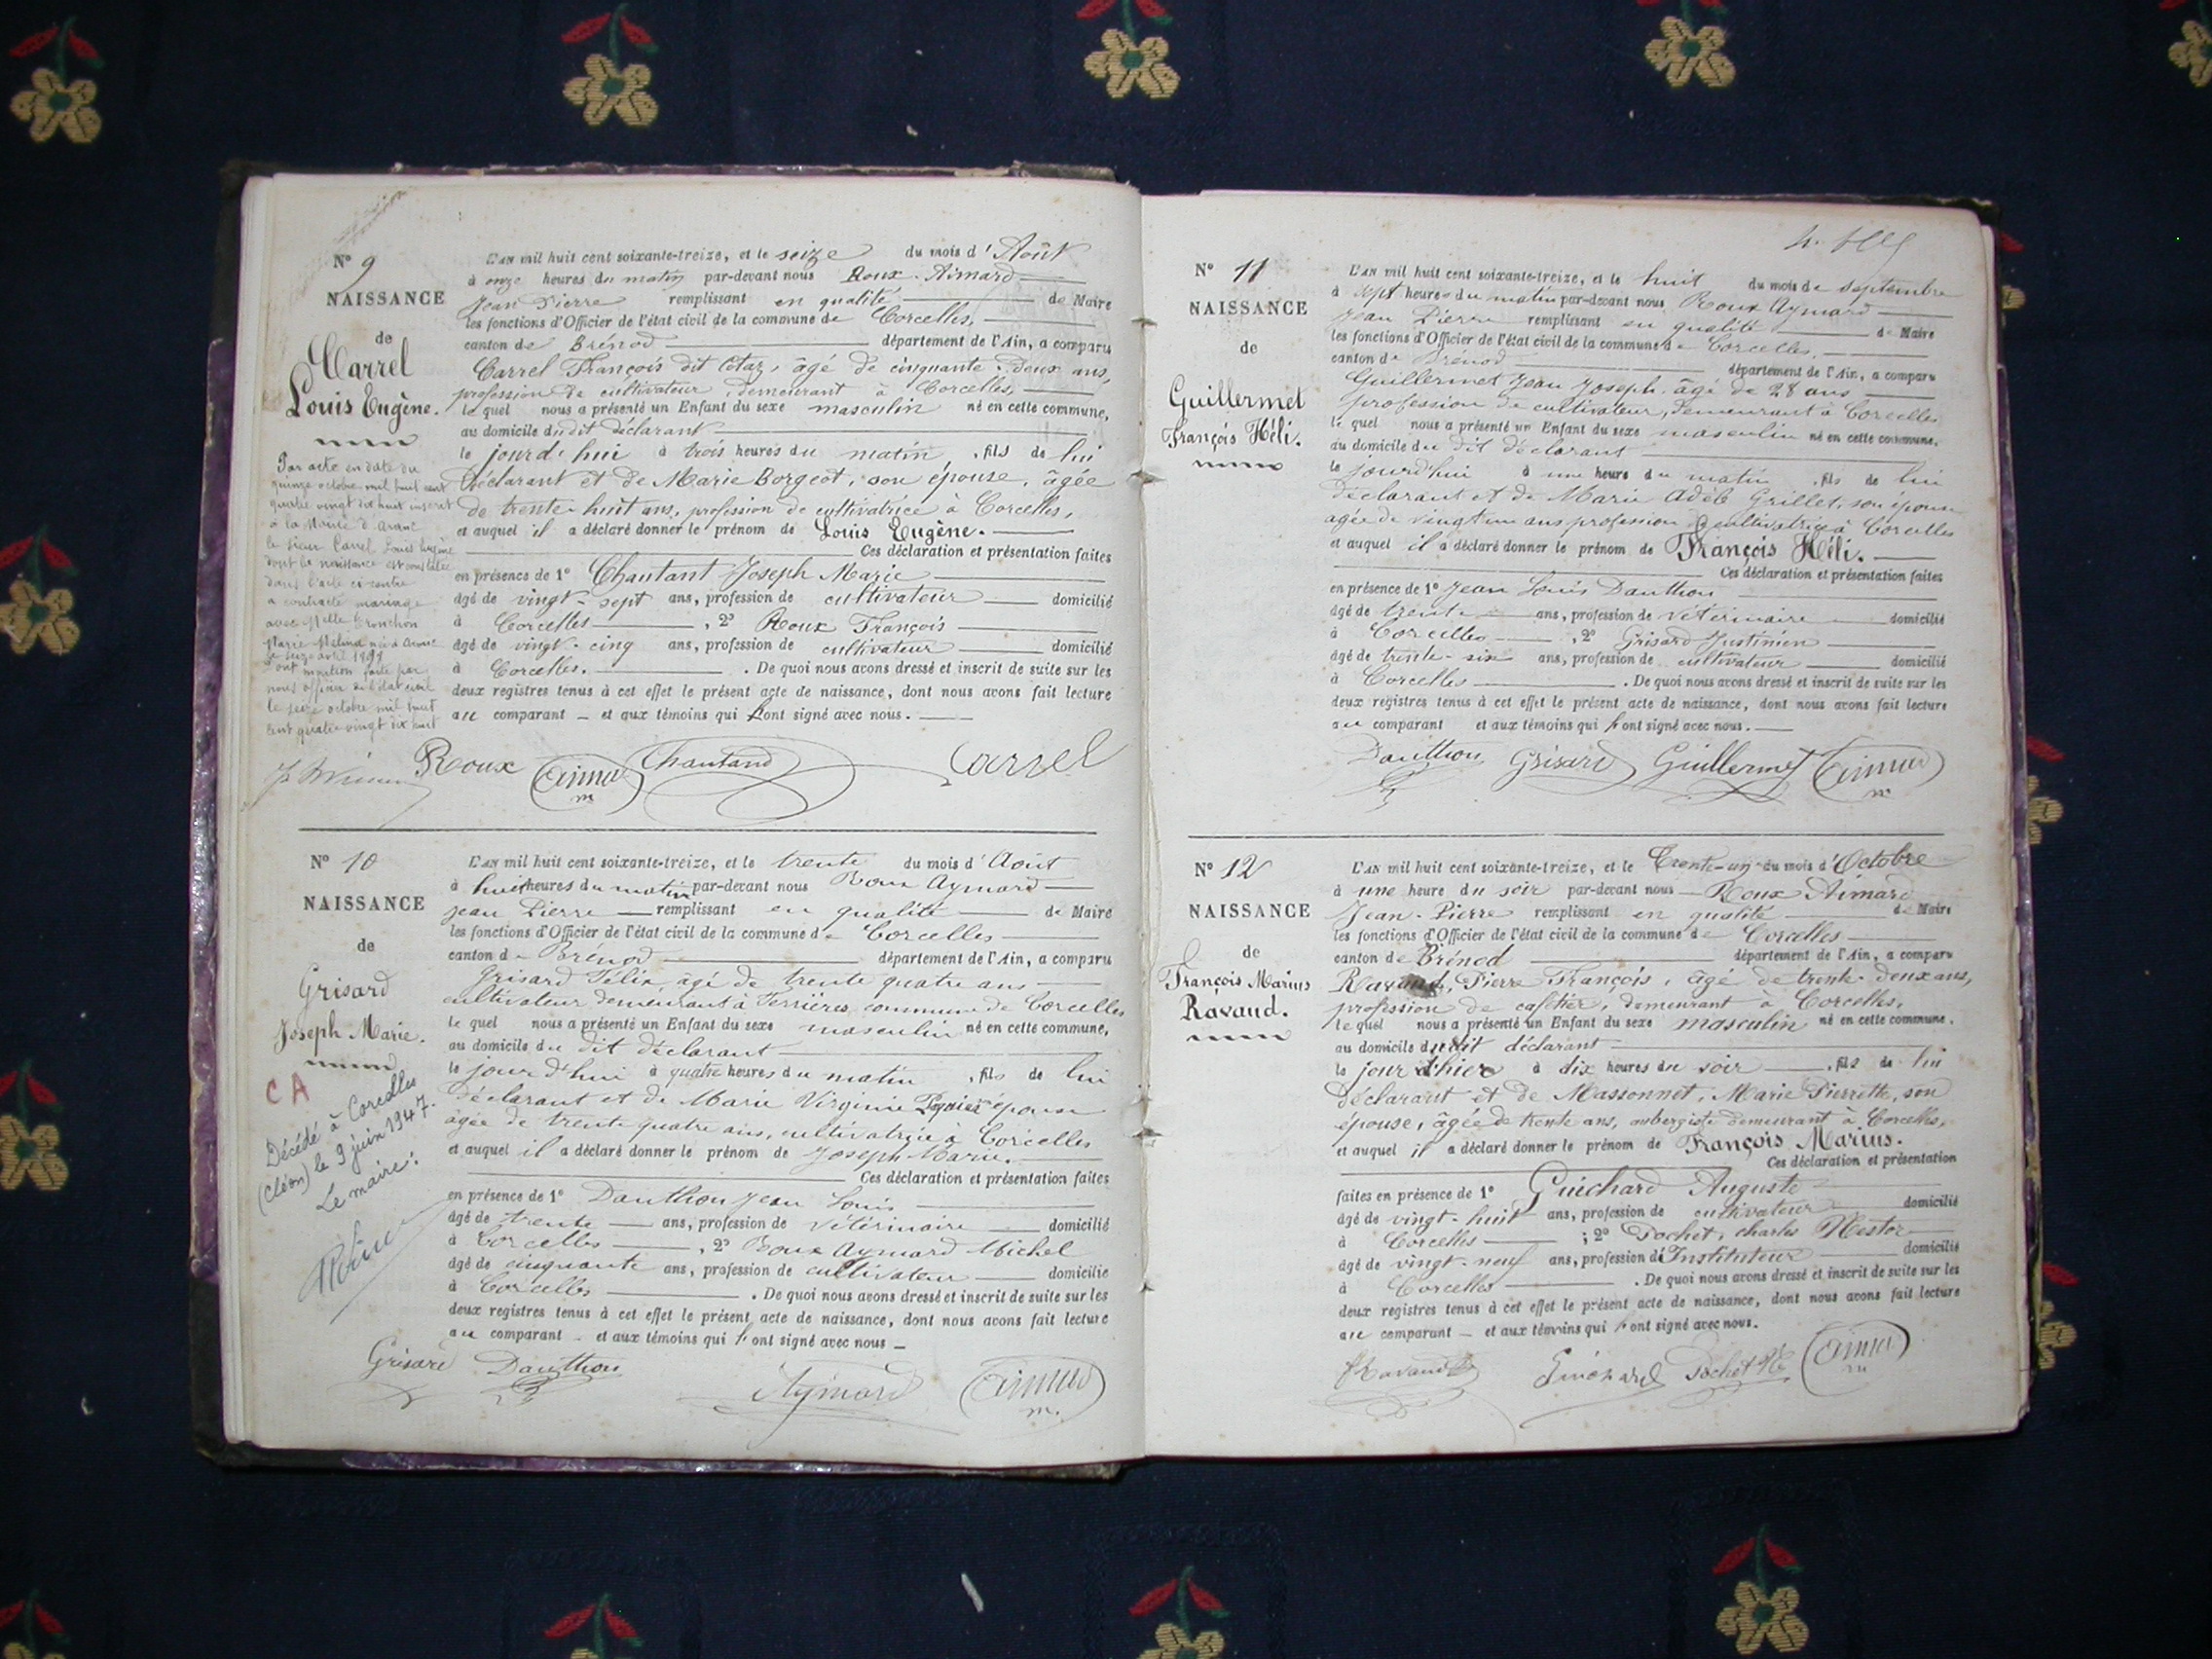 N° 9
NAISSANCE
de
Carrel
Louis Eugène.
Par acte en date du
quinze octobre mil huit cent
quatre vingt dix huit inscrit
à la Mairie d'Aranc
le sieur Carrel Louis Eugène
dont la naissance est constatée
dans l'acte ci contre
a contracté mariage
avec Melle Tronchon
Marie née à Aranc
le seize avril
Dont mention faite par
nous officier de l'état civil
le seize octobre mil huit
cent quatre vingt dix huit
L'AN mil huit cent soixante-treize, et le seize du mois d'Août
à onze heures du matin par-devant nous Roux-Aimard
Jean Pierre remplissant en qualité de Maire
les fonctions d'Officier de l'état civil de la commune de Corcelles,
canton de Brénod département de l'Ain, a comparu
Carrel François dit Cotaz, âgé de cinquante-deux ans,
profession de cultivateur, demeurant à Corcelles,
lequel nous a présenté un Enfant du sexe masculin né en cette commune,
au domicile dudit déclarant
le jourd'hui à trois heures du matin, fils de lui
déclarant et de Marie Borgeot, son épouse, âgée
de trente-huit ans, profession de cultivatrice à Corcelles,
et auquel il a déclaré donner le prénom de Louis Eugène.
Ces déclaration et présentation faites
en présence de 1° Chautant Joseph Marie
âgé de vingt-sept ans, profession de cultivateur domicilié
à Corcelles, 2° Roux François
âgé de vingt-cinq ans, profession de cultivateur domicilié
à Corcelles. De quoi nous avons dressé et inscrit de suite sur les
deux registres tenus à cet effet le présent acte de naissance, dont nous avons fait lecture
au comparant – et aux témoins qui l'ont signé avec nous.
Roux Aimard Chautand Carrel
m
N° 10
NAISSANCE
de
Grisard
Joseph Marie.
CA
Décédé à Corcelles
(Cléon) le 9 juin 1947.
Le maire:
L'AN mil huit cent soixante-treize, et le trente du mois d'Août
à huit heures du matin par-devant nous Roux Aymard
Jean Pierre remplissant en qualité de Maire
les fonctions d'Officier de l'état civil de la commune de Corcelles
canton de Brénod département de l'Ain, a comparu
Grisard Félix, âgé de trente quatre ans
cultivateur demeurant à Ferrières commune de Corcelles
lequel nous a présenté un Enfant du sexe masculin né en cette commune,
au domicile du dit déclarant
le jourd'hui à quatre heures du matin, fils de lui
déclarant et de Marie Virginie épouse
âgée de trente quatre ans, cultivatrice à Corcelles
et auquel il a déclaré donner le prénom de Joseph Marie.
Ces déclaration et présentation faites
en présence de 1° Dauthon Jean Louis
âgé de trente ans, profession de vétérinaire domicilié
à Corcelles, 2° Roux Aymard Michel
âgé de cinquante ans, profession de cultivateur domicilié
à Corcelles. De quoi nous avons dressé et inscrit de suite sur les
deux registres tenus à cet effet le présent acte de naissance, dont nous avons fait lecture
au comparant – et aux témoins qui l'ont signé avec nous –
Grisard Dauthon Aymard Aimard
m.
N° 11
NAISSANCE
de
Guillermet
François Héli.
L'AN mil huit cent soixante-treize, et le huit du mois de septembre
à sept heures du matin par-devant nous Roux Aymard
Jean Pierre remplissant en qualité de Maire
les fonctions d'Officier de l'état civil de la commune de Corcelles,
canton de Brénod département de l'Ain, a comparu
Guillermet Jean Joseph, âgé de 28 ans
profession de cultivateur, demeurant à Corcelles
lequel nous a présenté un Enfant du sexe masculin né en cette commune,
au domicile du dit déclarant
le jourd'hui à une heure du matin, fils de lui
déclarant et de Marie Adèle Grillet, son épouse
agée de vingt un ans profession de cultivatrice à Corcelles
et auquel il a déclaré donner le prénom de François Héli.
Ces déclaration et présentation faites
en présence de 1° Jean Louis Dauthon
âgé de trente ans, profession de vétérinaire domicilié
à Corcelles, 2° Grisard Justinien
âgé de trente-six ans, profession de cultivateur domicilié
à Corcelles. De quoi nous avons dressé et inscrit de suite sur les
deux registres tenus à cet effet le présent acte de naissance, dont nous avons fait lecture
au comparant et aux témoins qui l'ont signé avec nous.
Dauthon Grisard Guillermet Aimard
m
N° 12
NAISSANCE
de
François Marius
Ravaud.
L'AN mil huit cent soixante-treize, et le Trente-un du mois d'Octobre
à une heure du soir par-devant nous Roux Aimard
Jean-Pierre remplissant en qualité de Maire
les fonctions d'Officier de l'état civil de la commune de Corcelles
canton de Brénod département de l'Ain, a comparu
Ravaud, Pierre François, âgé de trente-deux ans,
profession de cafetier, demeurant à Corcelles,
lequel nous a présenté un Enfant du sexe masculin né en cette commune,
au domicile dudit déclarant
le jour d'hier à dix heures du soir, fils de lui
déclarant et de Massonnet, Marie Pierrette, son
épouse, âgée de trente ans, aubergiste demeurant à Corcelles,
et auquel il a déclaré donner le prénom de François Marius.
Ces déclaration et présentation
faites en présence de 1° Guichard Auguste
âgé de vingt-huit ans, profession de cultivateur domicilié
à Corcelles; 2° Pochet, Charles Nestor
âgé de vingt-neuf ans, profession d'Instituteur domicilié
à Corcelles. De quoi nous avons dressé et inscrit de suite sur les
deux registres tenus à cet effet le présent acte de naissance, dont nous avons fait lecture
au comparant – et aux témoins qui l'ont signé avec nous.
Ravaud Guichard Pochet Aimard
m